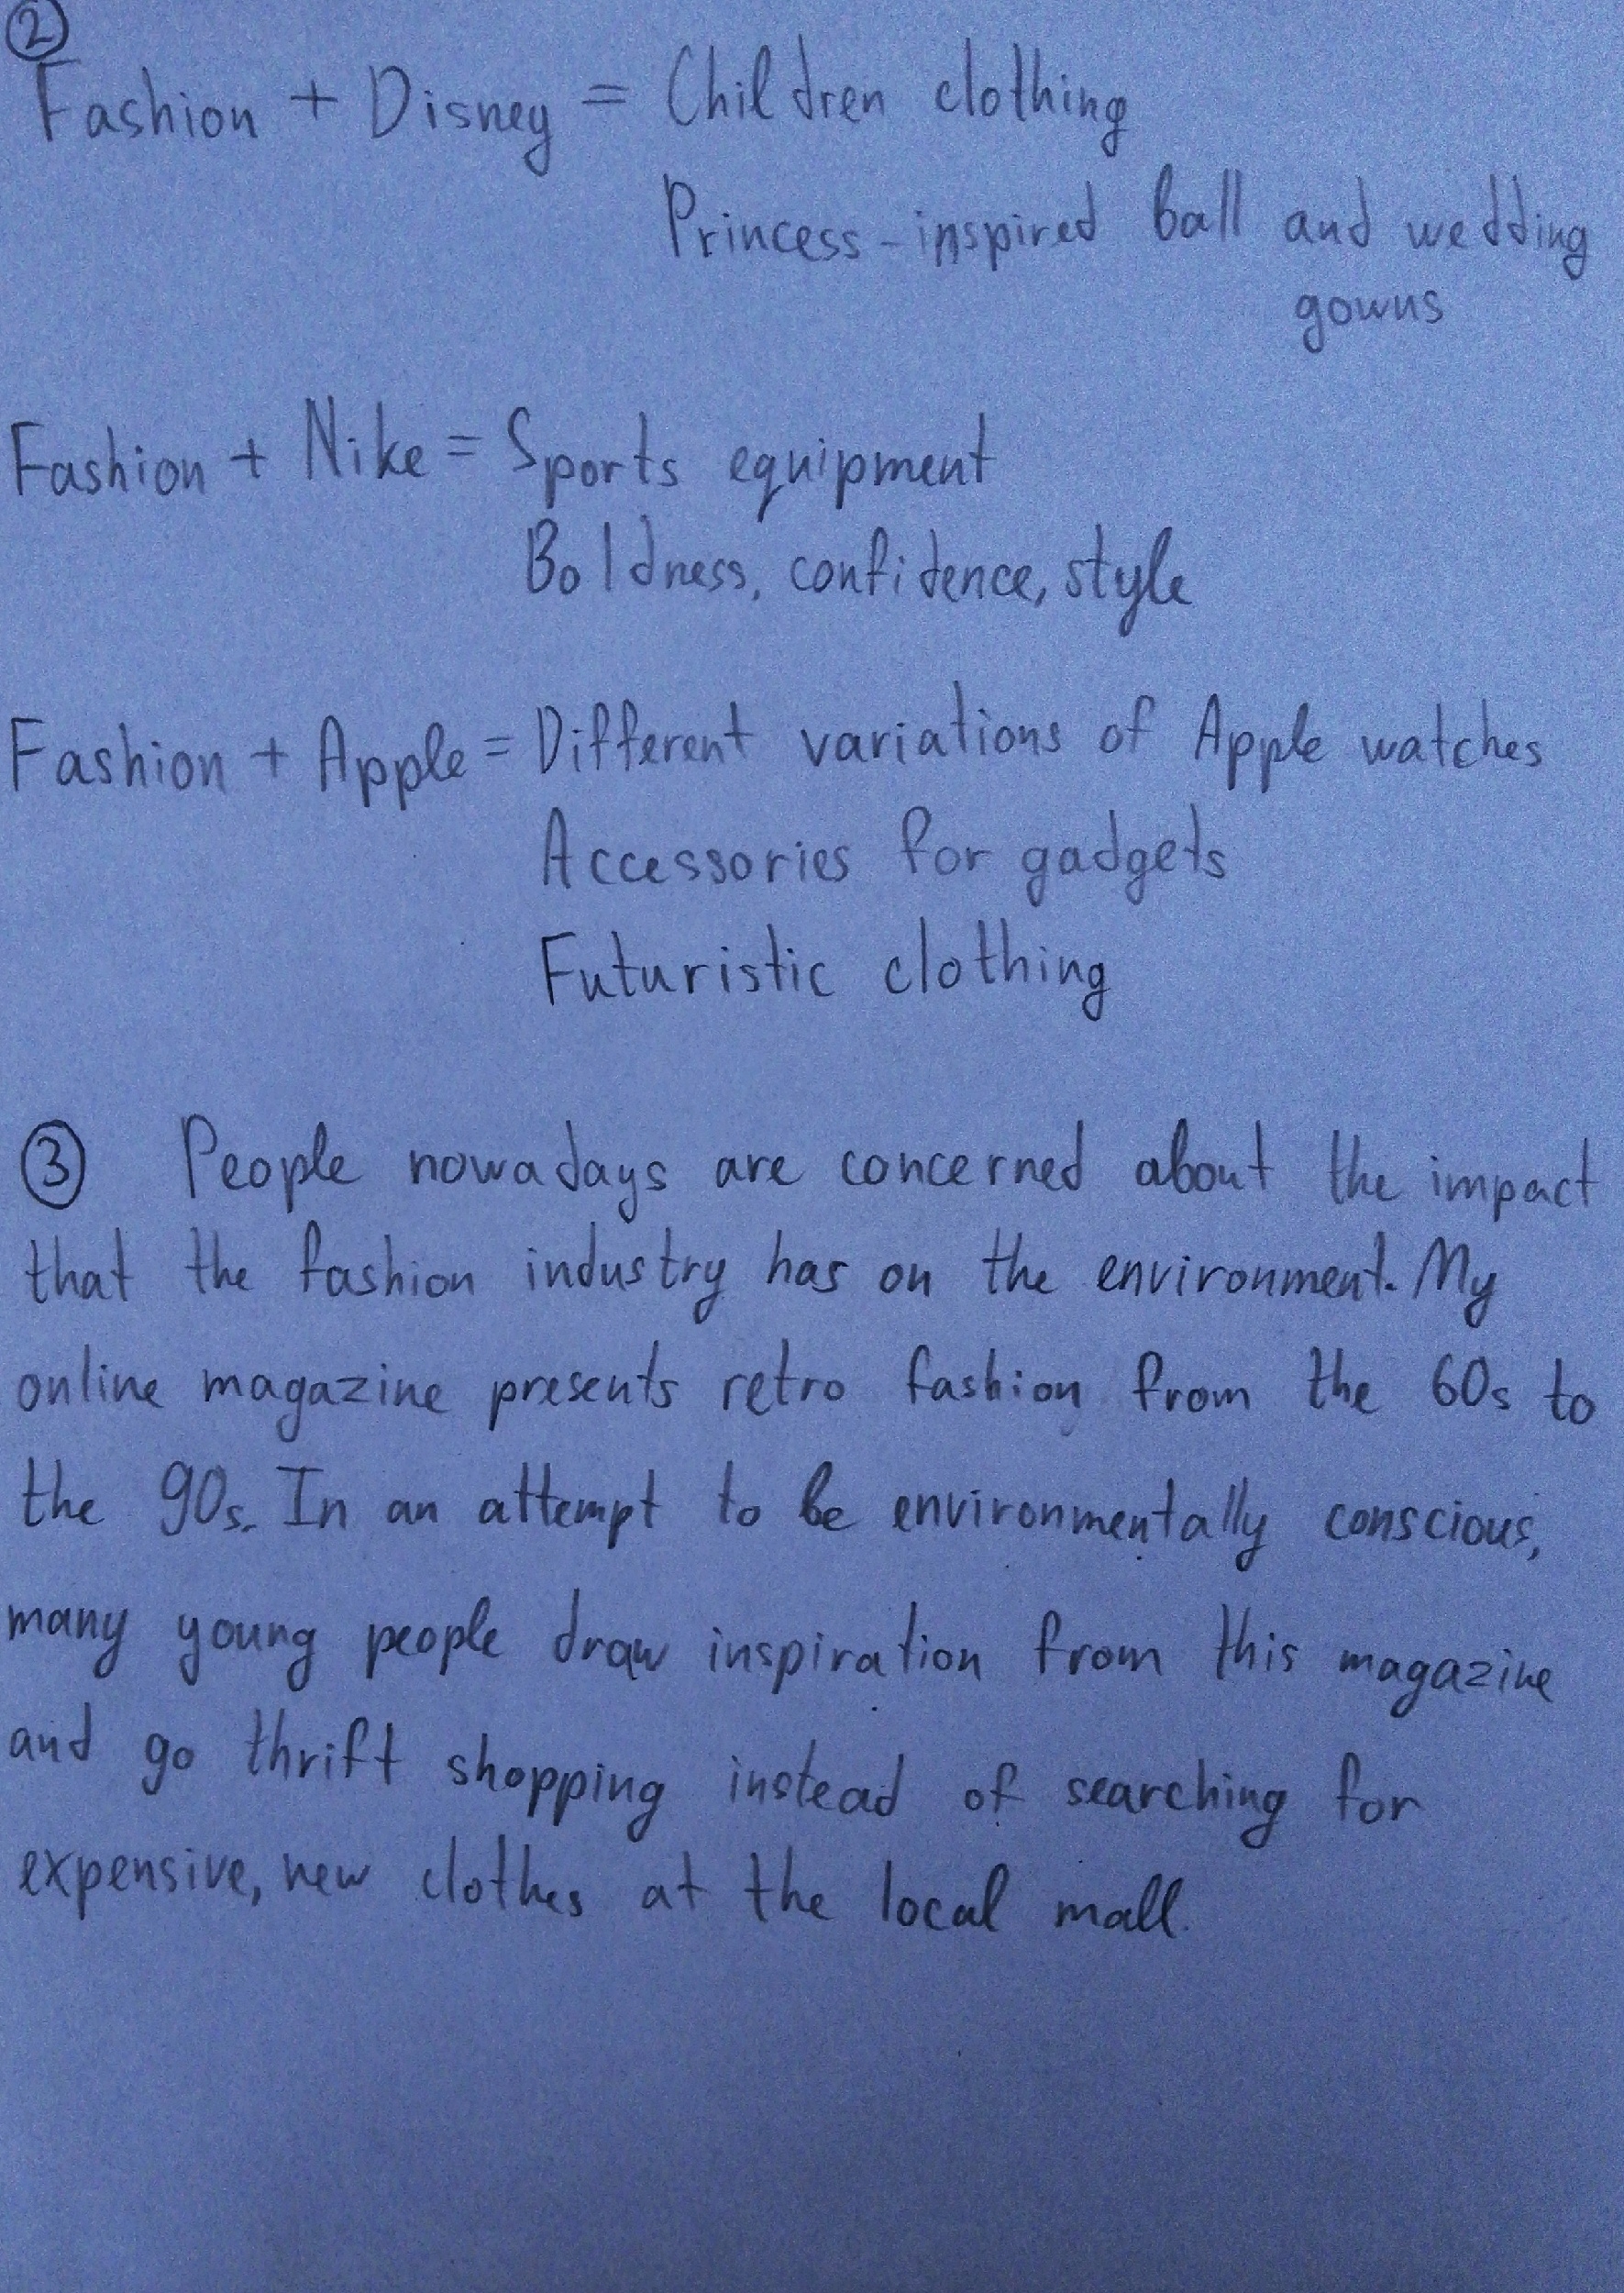 2
Fashion + Disney = Children clothing
Princess-inspired ball and wedding
gowns
Fashion + Nike = Sports equipment
Boldness, confidence, style
Fashion + Apple = Different variations of Apple watches
Accessories for gadgets
Futuristic clothing
3 People nowadays are concerned about the impact
that the fashion industry has on the environment. My
online magazine presents retro fashion from the 60s to
the 90s. In an attempt to be environmentally conscious,
many young people draw inspiration from this magazine
and go thrift shopping instead of searching for
expensive, new clothes at the local mall.